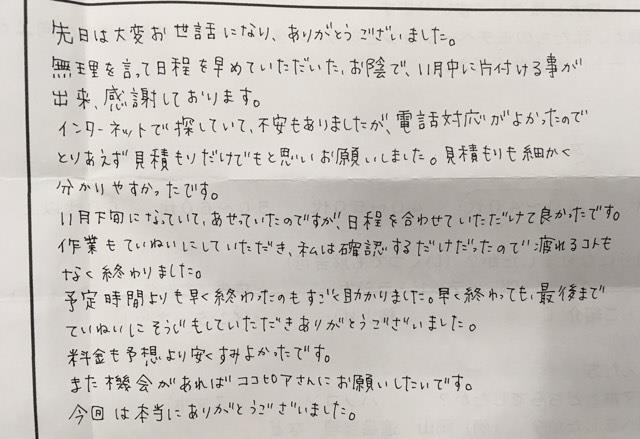 先日は大変お世話になり、ありがとうございました。
無理を言って日程を早めていただいたお陰で、11月中に片付ける事が
出来、感謝しております。
インターネットで探していて、不安もありましたが、電話対応がよかったので
とりあえず見積もりだけでもと思いお願いしました。見積もりも細かく
分かりやすかったです。
11月下旬になっていて、あせっていたのですが、日程を合わせていただけて良かったです。
作業もていねいにしていただき、私は確認するだけだったので疲れるコトも
なく終わりました。
予定時間よりも早く終わったのもすごく助かりました。早く終わっても、最後まで
ていねいにそうじもしていただきありがとうございました。
料金も予想より安くすみよかったです。
また機会があればココピアさんにお願いしたいです。
今回は本当にありがとうございました。